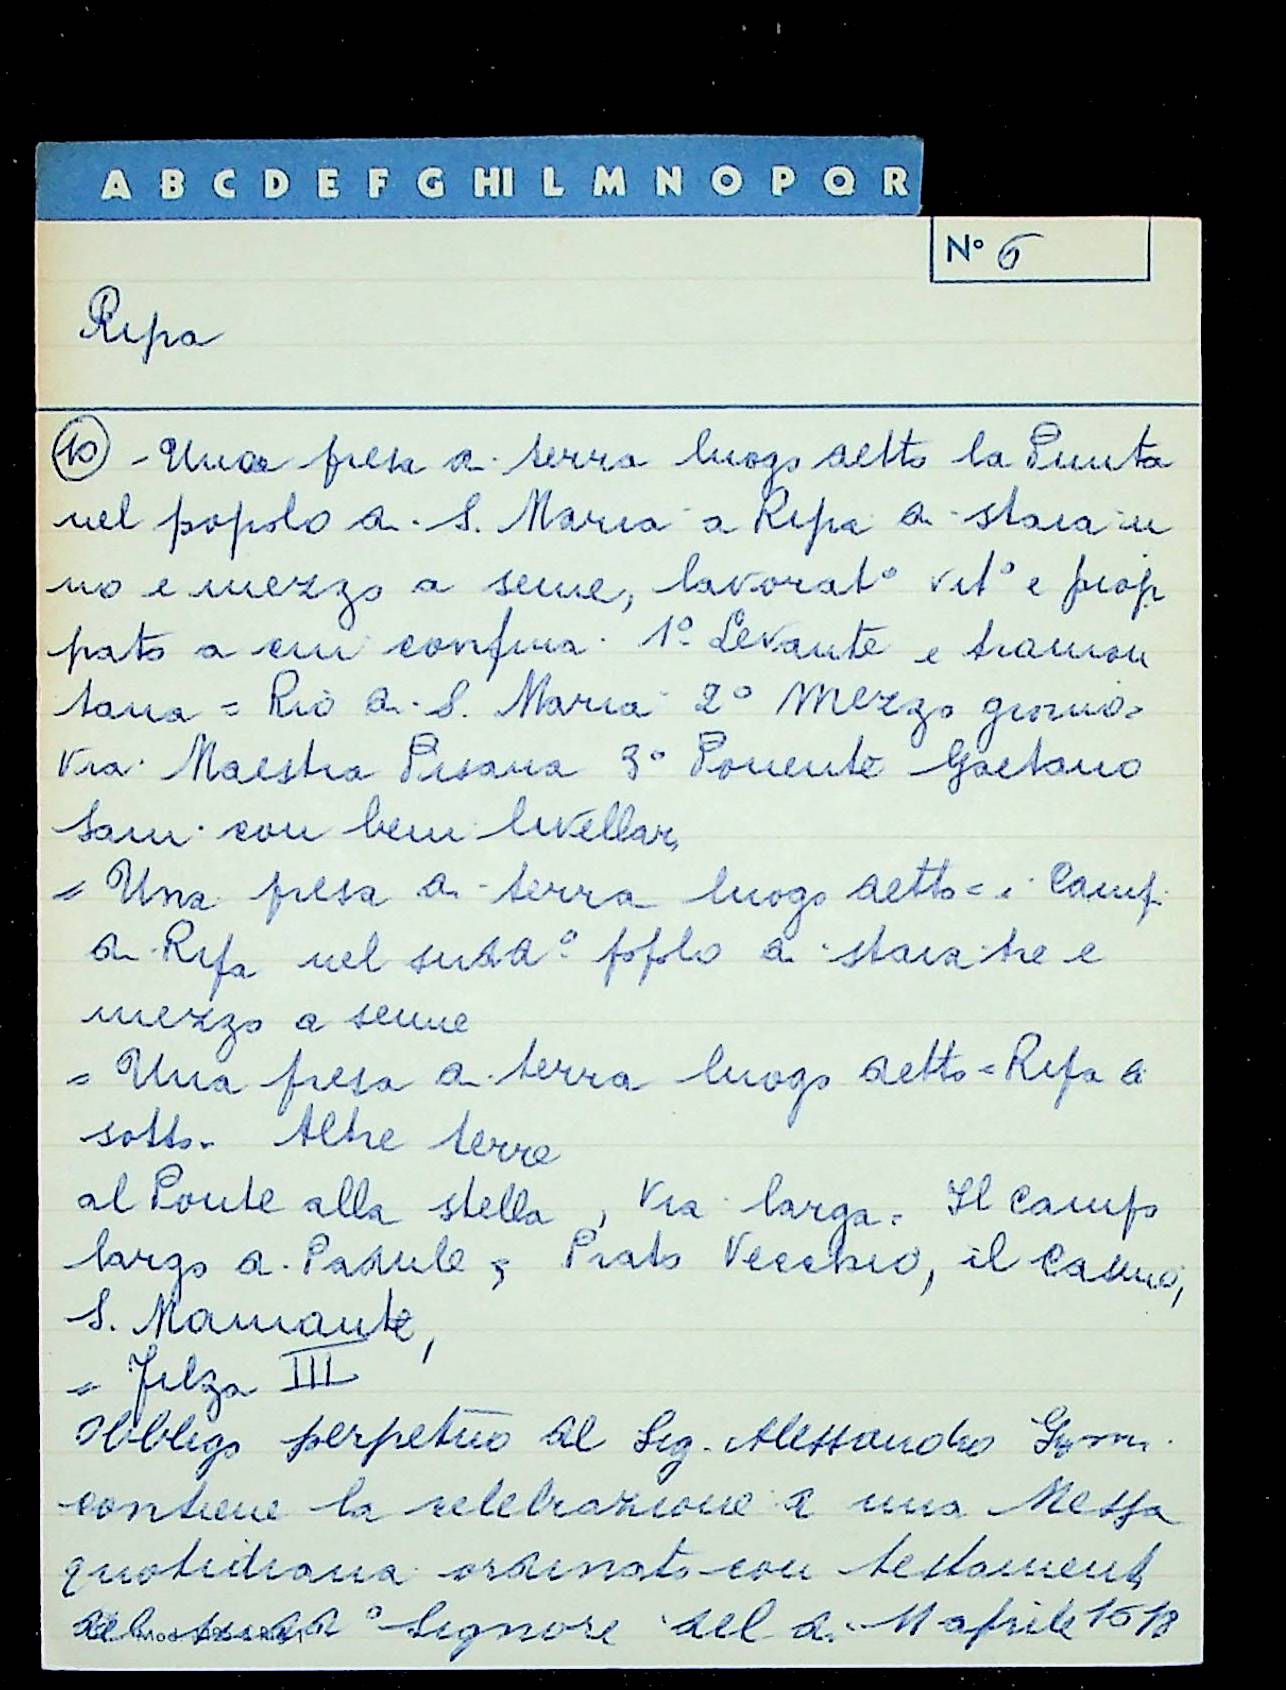 A B C D E F G HI L M N O P Q R
N° 6
Ripa
10 - Una presa di terra luogo detto la Punta
nel popolo di S. Maria a Ripa di staia u
no e mezzo a seme, lavorat° vit° e piop
pato a cui confina 1° Levante e tramon
tana = Rio di S. Maria 2° Mezzo giorno =
Via Maestra Pisana 3° Ponente Gaetano
Sani con beni livellari,
= Una presa di terra luogo detto = i Campi
di Ripa nel sudd° popolo di staia tre e
mezzo a seme
= Una presa di terra luogo detto = Ripa di
sotto. Altre terre
al Ponte alla stella, Via larga. Il Campo
largo di Padule, Prato Vecchio, il Casino,
S. Mamante,
= Filza III
Obbligo perpetuo del Sig. Alessandro
contiene la celebrazione di una Messa
quotidiana ordinato con testamento
del sudd° Signore del di 11 aprile 1618